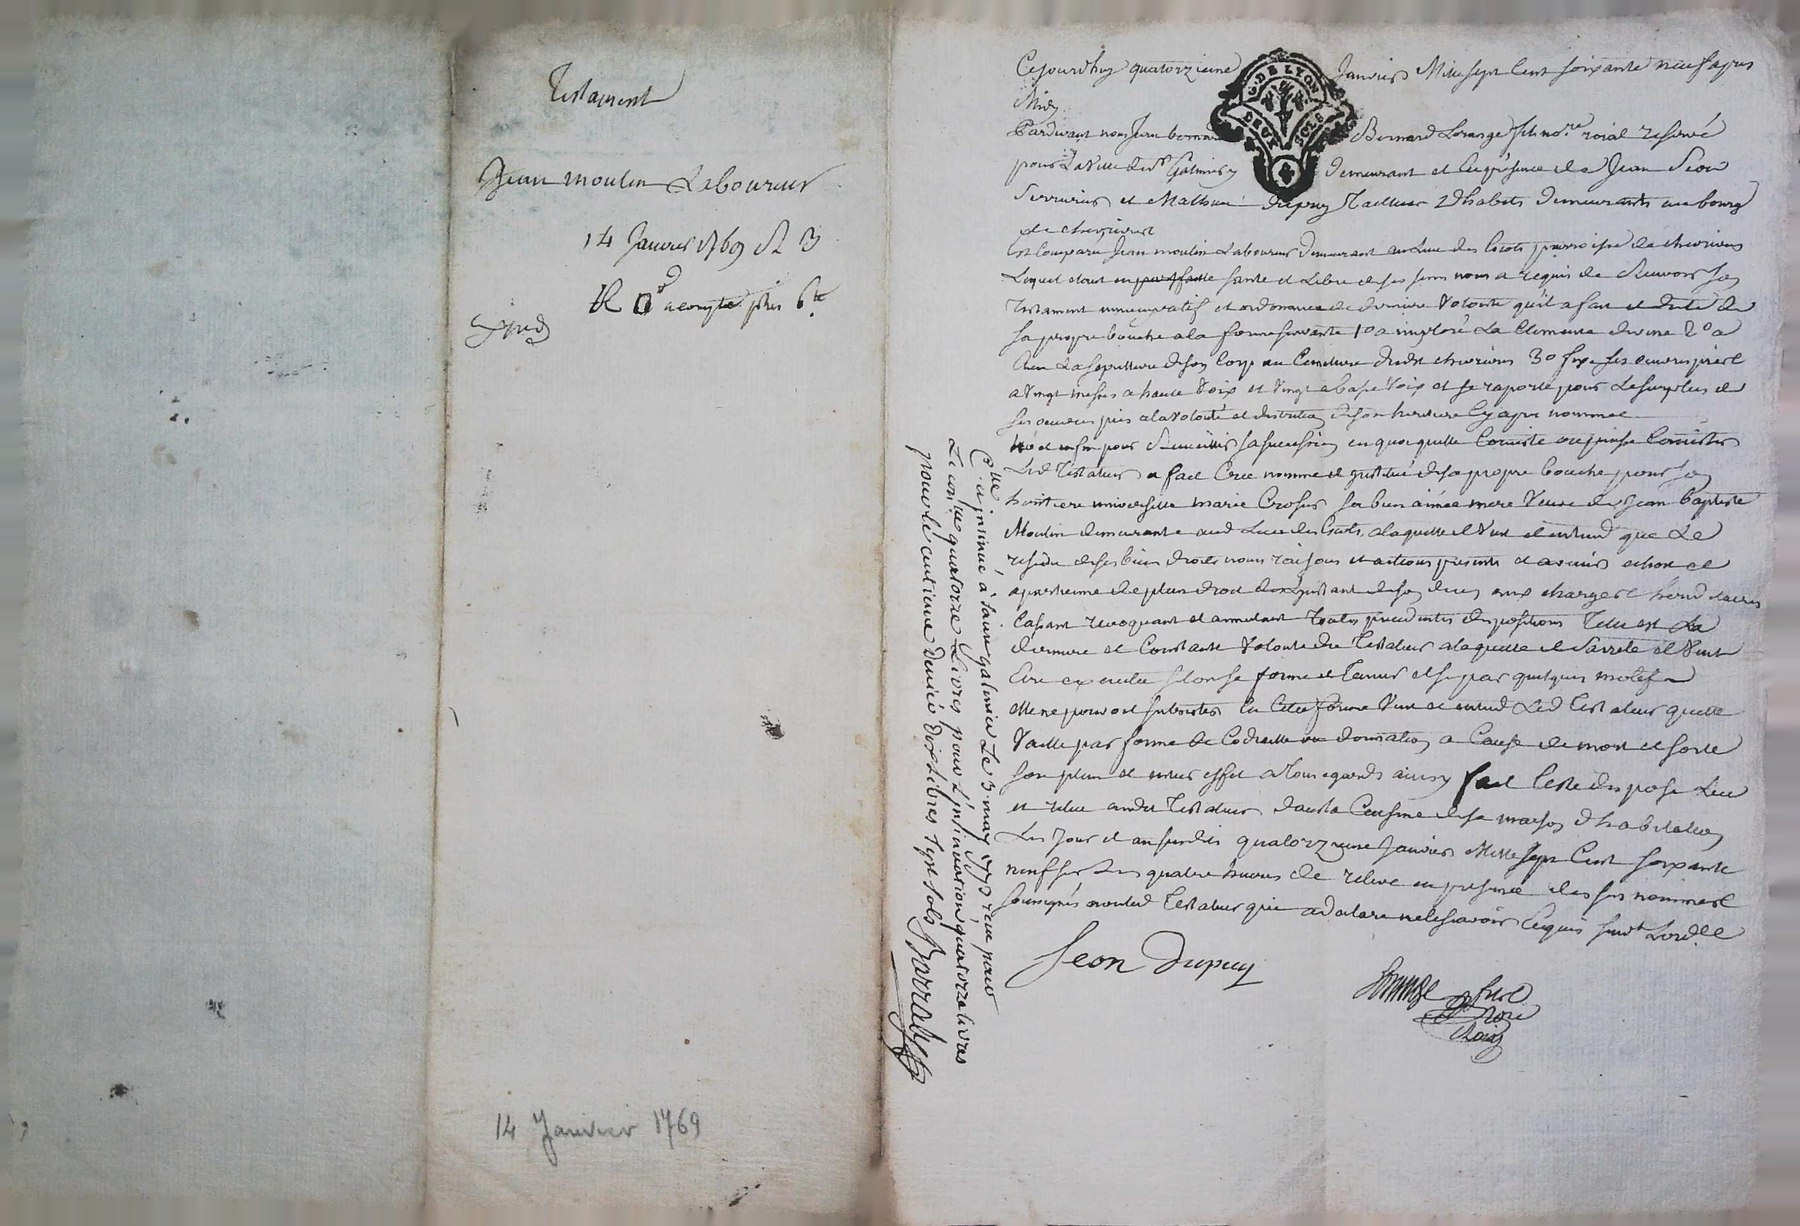 Testament
Jean moulin Laboureur
14 Janvier 1769
R acompte 6tt
Exped
14 Janvier 1769
Cejourdhuy quatorzieme Janvier Mille sept Cent soixante neuf apres
Midy
G. DE LYON
DEUX SOLS
Pardevant nous Jean Bernard Lorange fils nore roial reservé
pour La Ville de St Galmier y demeurant et En presence de Jean Seon
Serrurier et Mathieu Dupuy Tailleur Dhabits demeurants au bourg
de chevrieres
Est Comparu Jean moulin Laboureur demeurant au Lieu des paroisse de chevrieres
Lequel etant en parfaitte santé et Libre de ses sens nous a requis de Recevoir son
Testament nuncupatif et ordonnance de derniere Volonté quil a fait et dicté de
sa propre bouche a la forme suivante 1o a imploré La Clemence divine 2o a
Eleu La sepulture de son Corps au Cimetiere dudit chevrieres 3o fixe ses oeuvres pies
a Vingt messes a haute Voix et Vingt a basse Voix et se raporte pour Le surplus de
ses oeuvres pies a la volonté et discretion de son heritiere Cy apres nommée
et enfin pour Recueillir sa succession en quoy quelle Consiste ou puisse Consister
Led Testateur a fait Crée nommé et institué de sa propre bouche pour son
heritiere universelle marie Crosier sa bien aimée mere Veuve de Jean Baptiste
Moulin demeurante aud Lieu des a laquelle il Veut et entend que Le
residu de ses biens droits noms raisons et actions presents et avenir echoit et
apartienne de plein droit des Linstant de son deces aux charges hereditaires
Cassant revoquant et annulant Toutes precedentes dispositions Telle est La
derniere et Constante Volonté du Testateur a laquelle il Sarrete et Veut
Etre executée selon sa forme et Teneur et si par quelques motifs
elle ne pouvoit subsister En Cette forme Veut et entend Led Testateur quelle
Vaille par forme de Codicille ou donnation a Cause de mort et sorte
son plein et entier effet a Tous egards ainsy fait Testé disposé Leu
et releu audit Testateur dans la Cuisine de sa maison dhabitation
Les Jour et an susdits quatorzieme Janvier Mille sept Cent soixante
neuf sur Les quatre heures de relevé en presence des sus nommes
soussignés non led Testateur qui a declaré ne le scavoir Enquis
Seon Dupuy
Lorange fils
Nore
Roial
Con.lle et insinué à saint galmier Le 3 may 1773 reçu pour
Le con.lle quatorze Livres pour L'insinuation quatorze livres
pour le centieme denier dix Livres sept sols Barrablet